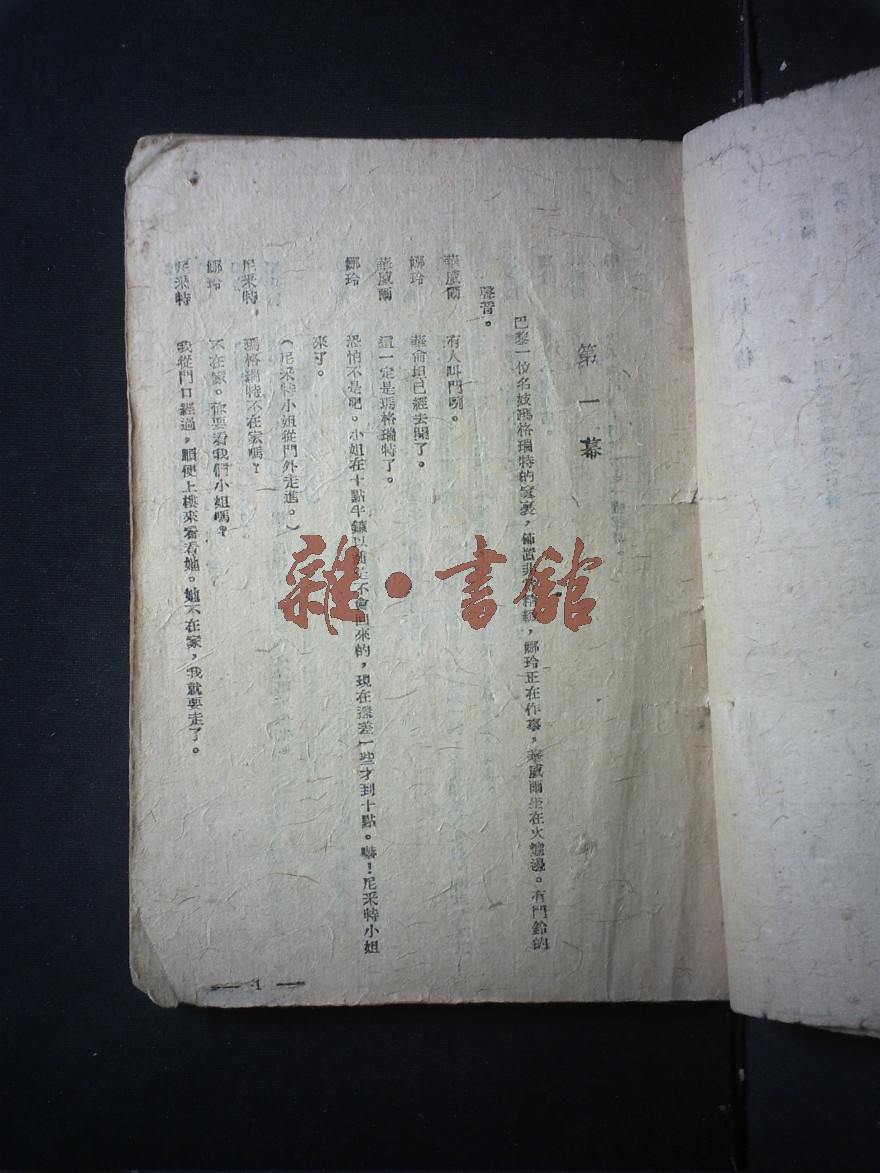 第一幕
巴黎一位名妓瑪格瑞特的家裏，佈置非常精緻，娜玲正在作事，華威爾坐在火爐邊。有門鈴的
聲音。
華威爾 有人叫門咧。
娜玲 華侖坦已經去開了。
華威爾 這一定是瑪格瑞特了。
娜玲 恐怕不是吧。小姐在十點半鐘以前是不會回來的，現在還差一些才到十點。嚇！尼采特小姐
來了。
（尼采特小姐從門外走進。）
尼采特， 瑪格瑞特不在家嗎？
娜玲 不在家。你要看我們小姐嗎？
尼采特 我從門口經過，順便上樓來看看她。她不在家，我就要走了。
— 1 —
雜·書館